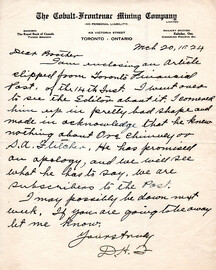 The Cobalt-Frontenac Mining Company
LIMITED
(NO PERSONAL LIABILITY)
BANKERS
The Royal Bank of Canada
415 VICTORIA STREET
TORONTO - ONTARIO
Mch 20, 1924
Dear Brother
I am enclosing an Article
clipped from Toronto Financial
Post. of the 14th Inst. I went over
to see the Editor about it. I cornered
him up in pretty bad shape and
made in acknowledge that he knew
nothing about Ore Chimney or
D.A. Fletcher. He has promised
an apology, and we will see
what he has to say, we are
subscribers to the Post.
I may possibly be down next
week. If you are going to be away
let me know.
Yours truly